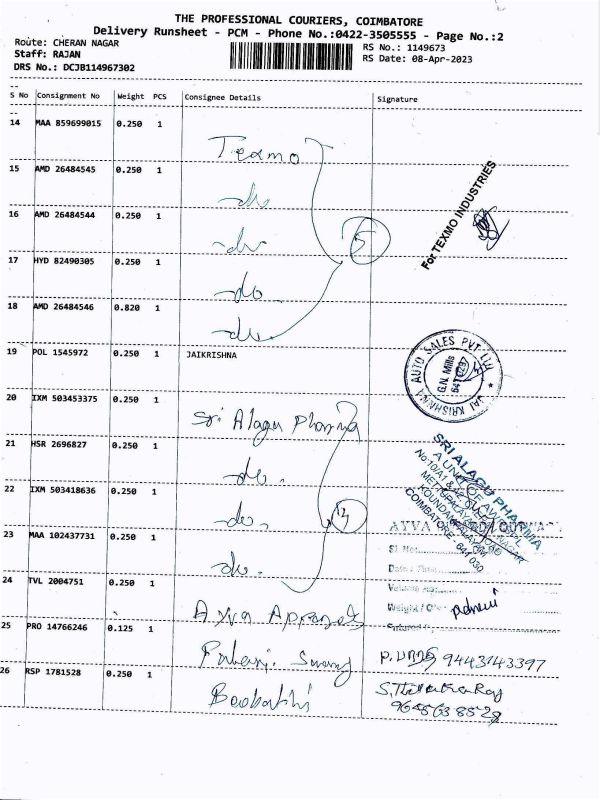 THE PROFESSIONAL COURIERS, COIMBATORE
Delivery Runsheet - PCM - Phone No.:0422-3505555 - Page No.:2
Route: CHERAN NAGAR
Staff: RAJAN
DRS No.: DCJB114967302
RS No.: 1149673
RS Date: 08-Apr-2023
S No Consignment No Weight PCS Consignee Details Signature
14 MAA 859699015 0.250 1
Texmo
15 AMD 26484545 0.250 1
-do-
16 AMD 26484544 0.250 1
-do-
5
For TEXMO INDUSTRIES
17 HYD 82490305 0.250 1
-do.
18 AMD 26484546 0.820 1
-do.
19 POL 1545972 0.250 1 JAIKRISHNA
JAI KRISHNAA AUTO SALES PVT LTD
G.N. Mills
641 029
20 IXM 503453375 0.250 1
Sri Alagu Pharma
21 HSR 2696827 0.250 1
do.
22 IXM 503418636 0.250 1
do.
SRI ALAGU PHARMA
A UNIT OF
COIMBATORE - 641 030
23 MAA 102437731 0.250 1
do.
24 TVL 2004751 0.250 1
Ayva
AYVA
Sl No:
Weight /
25 PRO 14766246 0.125 1
9443143397
26 RSP 1781528 0.250 1